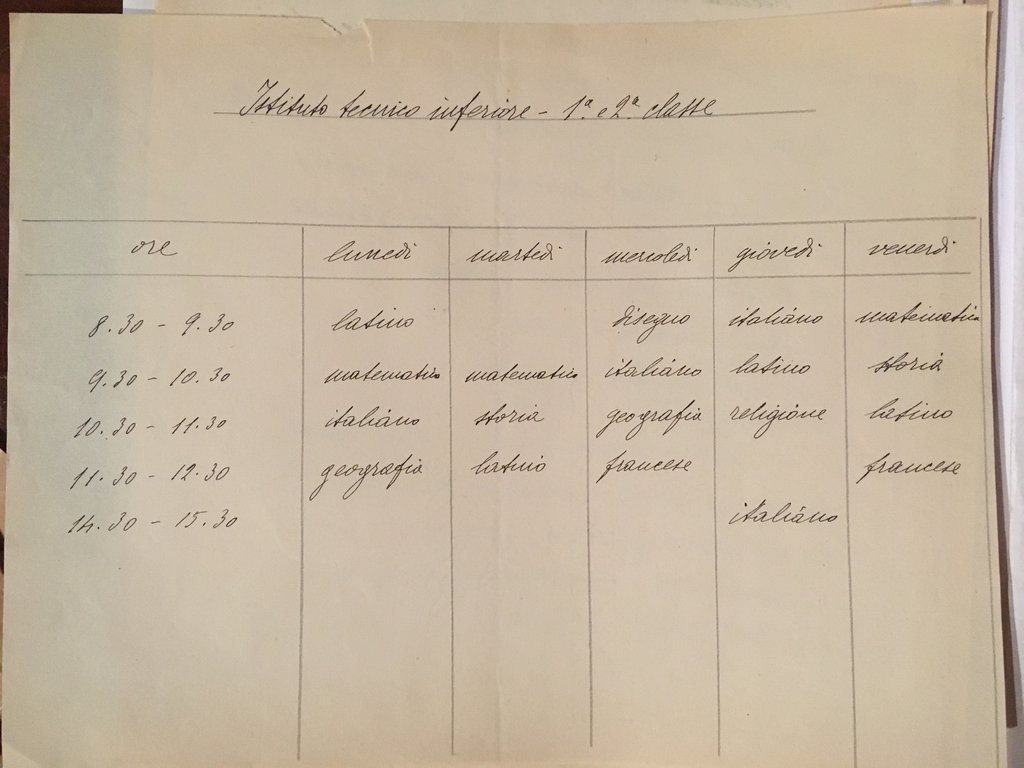 Istituto tecnico inferiore - 1ª e 2ª classe
ore lunedì martedì mercoledì giovedì venerdì
8.30 - 9.30 latino disegno italiano matematica
9.30 - 10.30 matematica matematica italiano latino storia
10.30 - 11.30 italiano storia geografia religione latino
11.30 - 12.30 geografia latino francese francese
14.30 - 15.30 italiano